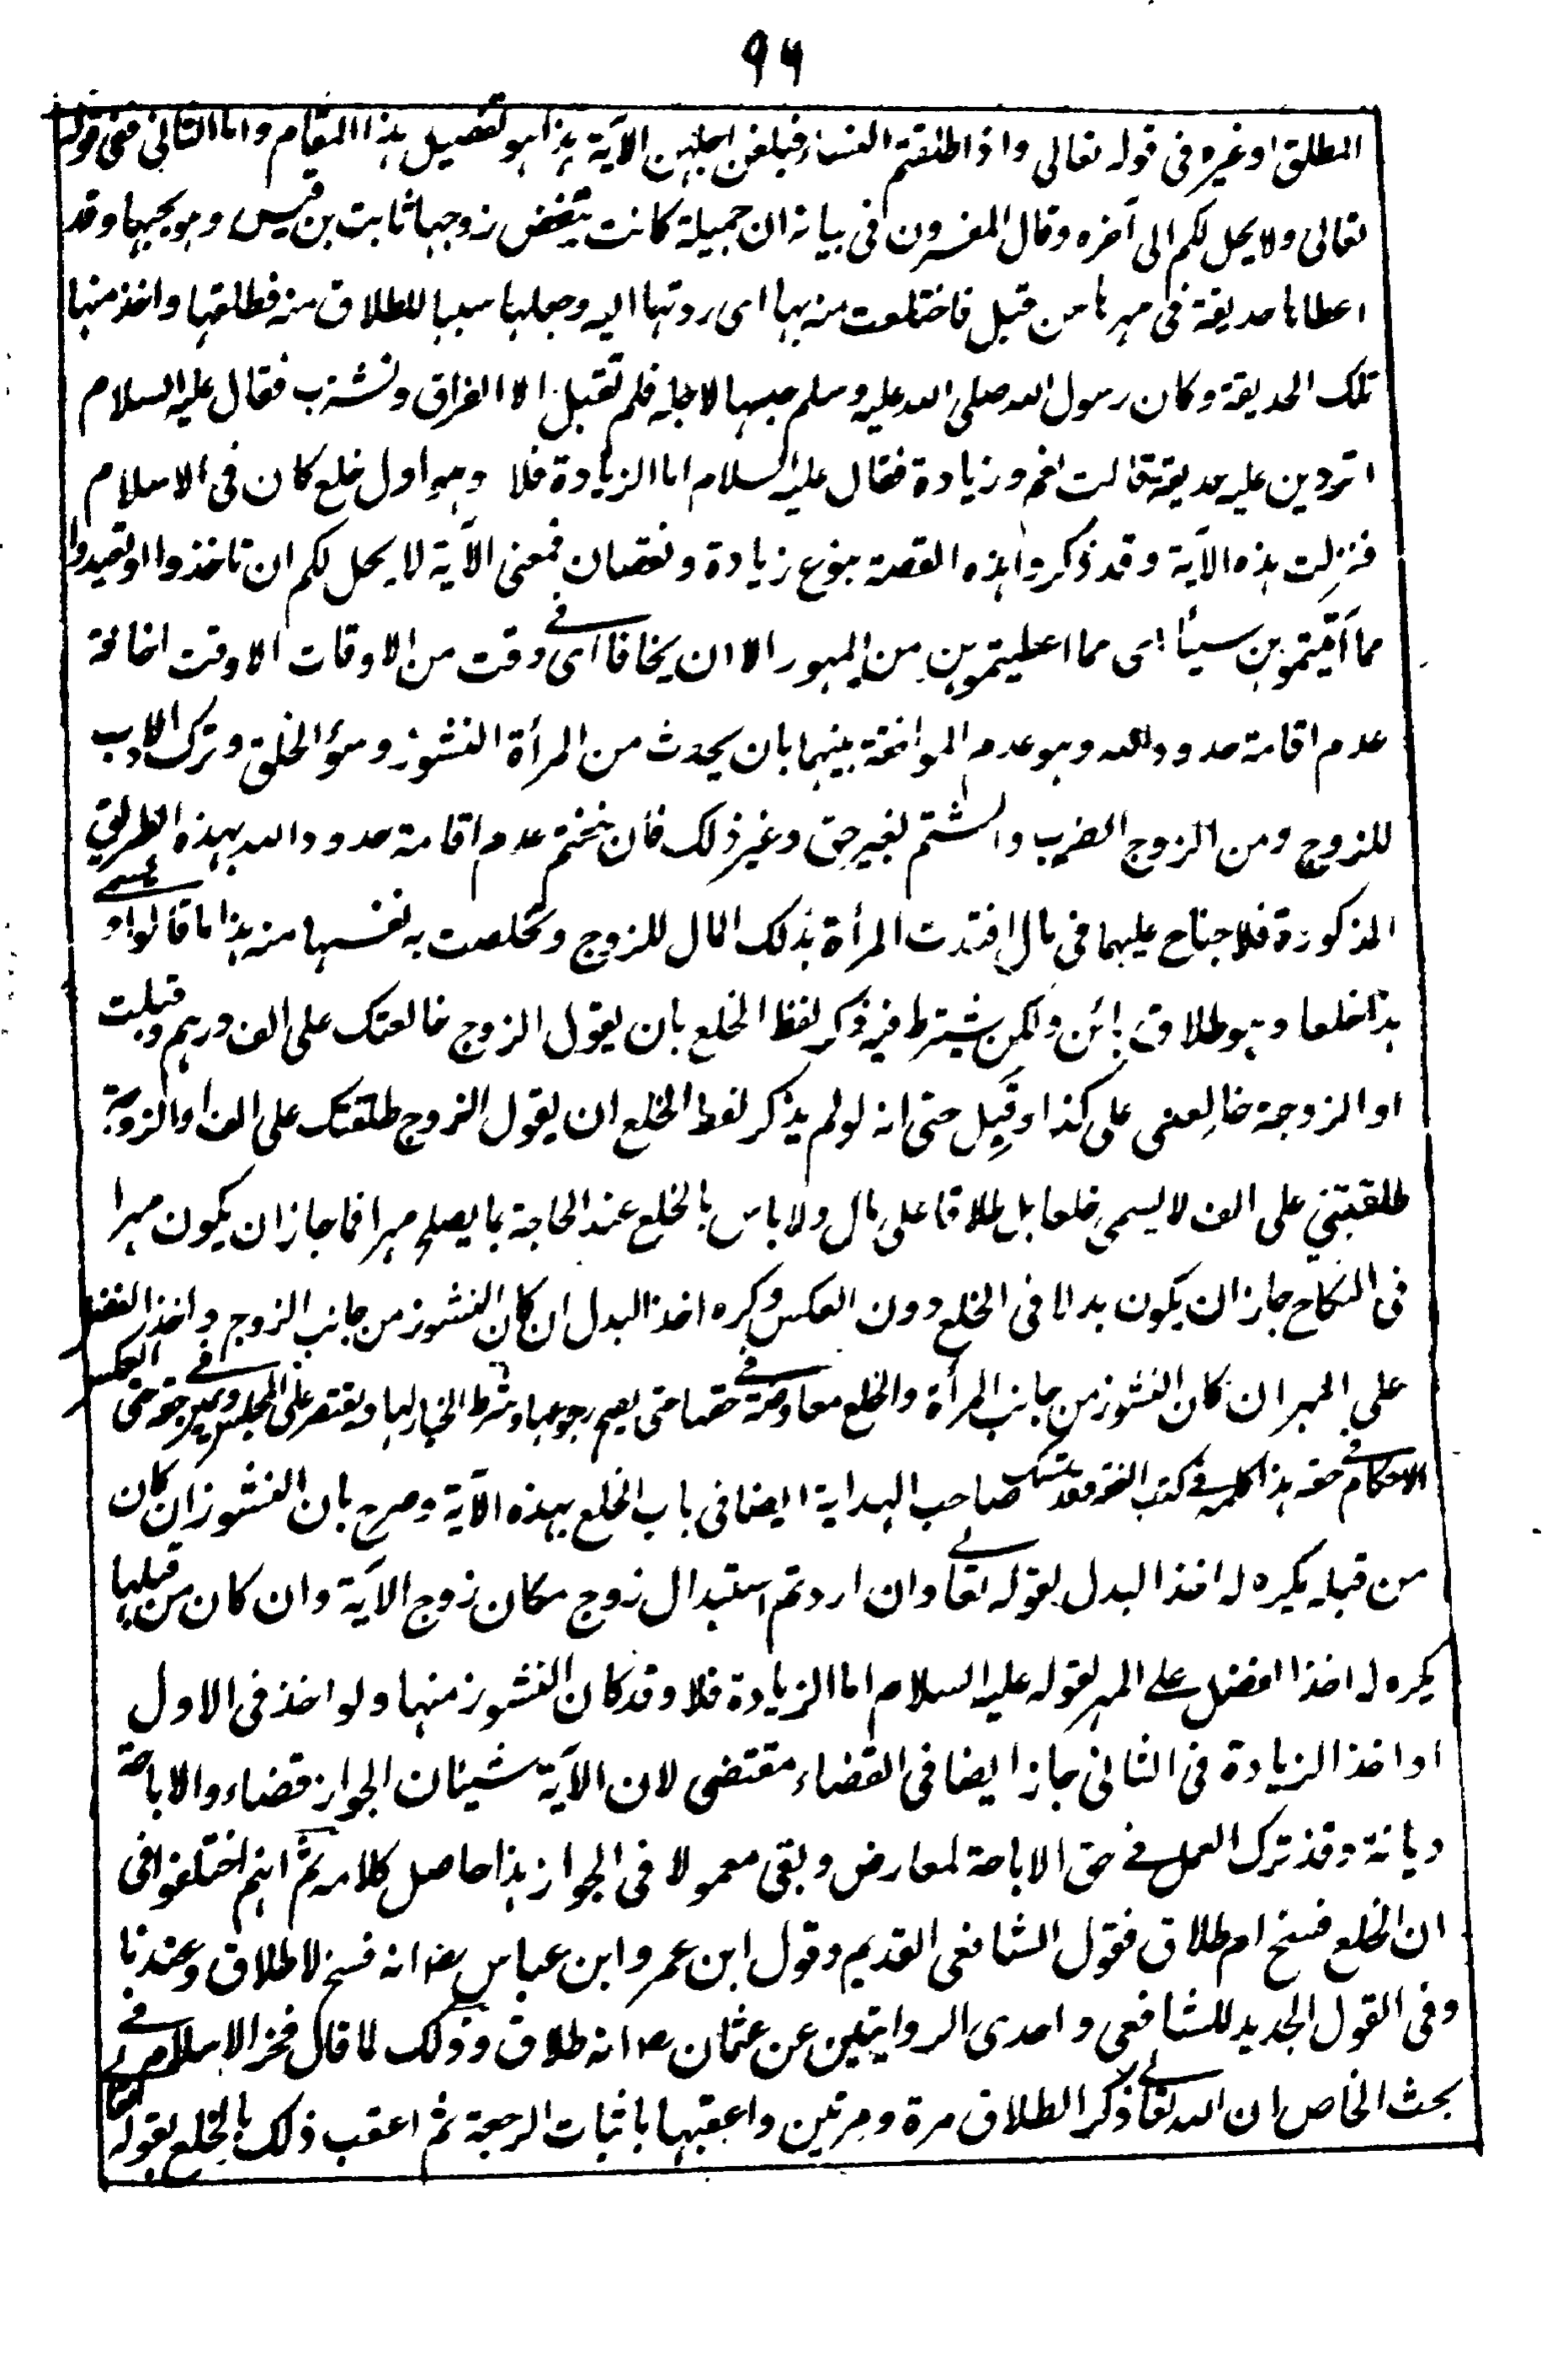 ٩٦
المطلق او غيره فى قوله تعالى واذا طلقتم النساء فبلغن اجلهن الآية هذا هو تفصيل هذا المقام واما الثانى ففى قوله
تعالى ولا يحل لكم الى آخره وقال المفسرون فى بيانه ان جميلة كانت تبغض زوجها ثابت بن قيس وهو يحبها وقد
اعطاها حديقة فى مهرها من قبل فاختلعت منه بها اى ردتها اليه وجعلها سببا للطلاق منه فطلقها واخذ منها
تلك الحديقة وكان رسول الله صلى الله عليه وسلم حبسها لاجله فلم تقبل الا الفراق ونشزت فقال عليه السلام
اتردين عليه حديقته قالت نعم وزيادة فقال عليه السلام اما الزيادة فلا وهو اول خلع كان فى الاسلام
فنزلت هذه الآية وقد ذكروا هذه القصة بنوع زيادة ونقصان فمعنى الآية لا يحل لكم ان تاخذوا او تعيدوا
مما آتيتموهن شيئا اى مما اعطيتموهن من المهور الا ان يخافا اى فى وقت من الاوقات الا وقت اخافة
عدم اقامة حدود الله وهو عدم الموافقة بينهما بان يحدث من المرأة النشوز وسؤ الخلق وترك الادب
للزوج ومن الزوج الضرب والشتم بغير حق وغير ذلك فان خفتم عدم اقامة حدود الله بهذه الطريق
المذكورة فلا جناح عليهما فى مال افتدت المرأة بذلك المال للزوج وتخلصت به نفسها منه هذا ما قالوا ويسمى
هذا خلعا وهو طلاق بائن ولكن يشترط فيه ذكر لفظ الخلع بان يقول الزوج خالعتك على الف درهم وقبلت
او الزوجة خالعنى على كذا وقبل حتى انه لو لم يذكر لفظ الخلع ان يقول الزوج طلقتك على الف او الزوجة
طلقتنى على الف لا يسمى خلعا بل طلاقا على مال ولا باس بالخلع عند الحاجة بما يصلح مهرا فما جاز ان يكون مهرا
فى النكاح جاز ان يكون بدلا فى الخلع دون العكس وكره اخذ البدل ان كان النشوز من جانب الزوج واخذ الفضل
على المهر ان كان النشوز من جانب المرأة والخلع معاوضة فى حقها حتى يصح رجوعها وشرط الخيار لها ويقتصر على المجلس ويمين فى حقه حتى العكس
الاحكام فى حقه هذا كله فى كتب الفقه وقد تمسك صاحب الهداية ايضا فى باب الخلع بهذه الآية وصرح بان النشوز ان كان
من قبله يكره له اخذ البدل لقوله تعالى وان اردتم استبدال زوج مكان زوج الآية وان كان من قبلها
يكره له اخذ الفضل على المهر لقوله عليه السلام اما الزيادة فلا وقد كان النشوز منها ولو اخذ فى الاول
او اخذ الزيادة فى الثانى جاز ايضا فى القضاء مقتضى لان الآية شيئان الجواز قضاء والاباحة
ديانة وقد ترك العمل فى حق الاباحة لمعارض وبقى معمولا فى الجواز هذا حاصل كلامه ثم انهم اختلفوا فى
ان الخلع فسخ ام طلاق فقول الشافعى القديم وقول ابن عمر وابن عباس رض انه فسخ لا طلاق وعندنا
وفى القول الجديد للشافعى واحدى الروايتين عن عثمان رض انه طلاق وذلك لما قال فخر الاسلام فى
بحث الخاص ان الله تعالى ذكر الطلاق مرة ومرتين واعقبها باثبات الرجعة ثم اعقب ذلك بالخلع بقوله تعالى